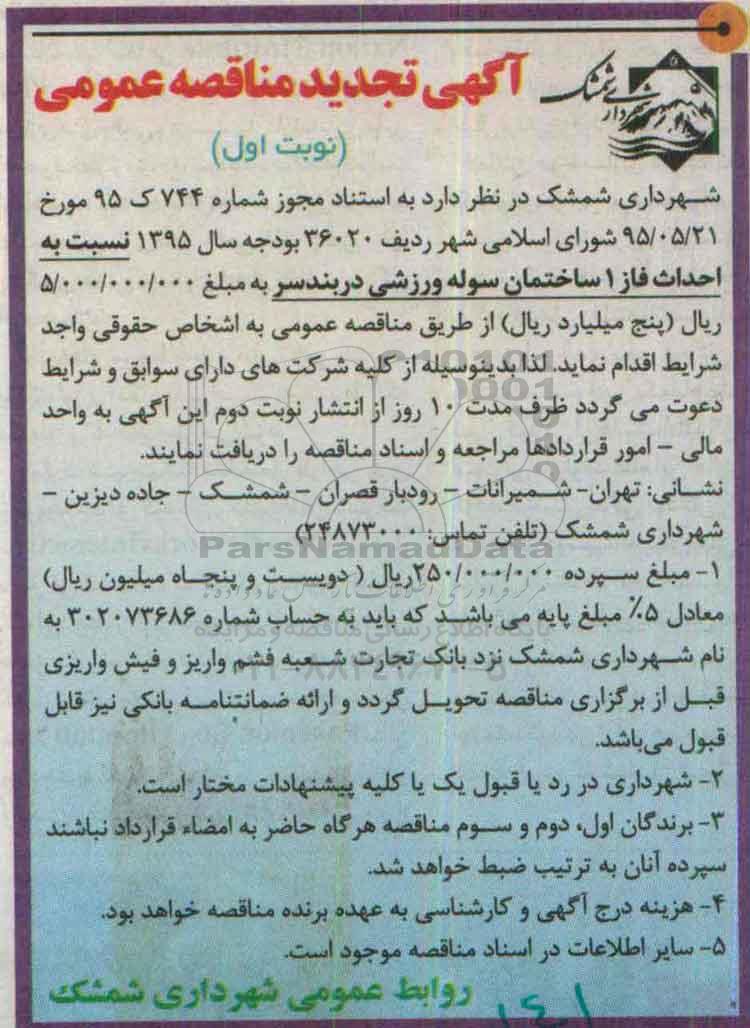 شهرداری شمشک
آگهی تجدید مناقصه عمومی
(نوبت اول)
شهرداری شمشک در نظر دارد به استناد مجوز شماره ۷۴۴ ک ۹۵ مورخ
۹۵/۰۵/۲۱ شورای اسلامی شهر ردیف ۳۶۰۲۰ بودجه سال ۱۳۹۵ نسبت به
احداث فاز ۱ ساختمان سوله ورزشی دربندسر به مبلغ ۵/۰۰۰/۰۰۰/۰۰۰
ریال (پنج میلیارد ریال) از طریق مناقصه عمومی به اشخاص حقوقی واجد
شرایط اقدام نماید. لذا بدینوسیله از کلیه شرکت های دارای سوابق و شرایط
دعوت می گردد ظرف مدت ۱۰ روز از انتشار نوبت دوم این آگهی به واحد
مالی – امور قراردادها مراجعه و اسناد مناقصه را دریافت نمایند.
نشانی: تهران- شمیرانات – رودبار قصران – شمشک – جاده دیزین –
شهرداری شمشک (تلفن تماس: ۲۴۸۷۳۰۰۰)
ParsNamadData
۱- مبلغ سپرده ۲۵۰/۰۰۰/۰۰۰ریال ( دویست و پنجاه میلیون ریال)
معادل ۵٪ مبلغ پایه می باشد که باید به حساب شماره ۳۰۲۰۷۳۶۸۶ به
نام شهرداری شمشک نزد بانک تجارت شعبه فشم واریز و فیش واریزی
قبل از برگزاری مناقصه تحویل گردد و ارائه ضمانتنامه بانکی نیز قابل
قبول می‌باشد.
۲- شهرداری در رد یا قبول یک یا کلیه پیشنهادات مختار است.
۳- برندگان اول، دوم و سوم مناقصه هرگاه حاضر به امضاء قرارداد نباشند
سپرده آنان به ترتیب ضبط خواهد شد.
۴- هزینه درج آگهی و کارشناسی به عهده برنده مناقصه خواهد بود.
۵- سایر اطلاعات در اسناد مناقصه موجود است.
روابط عمومی شهرداری شمشک